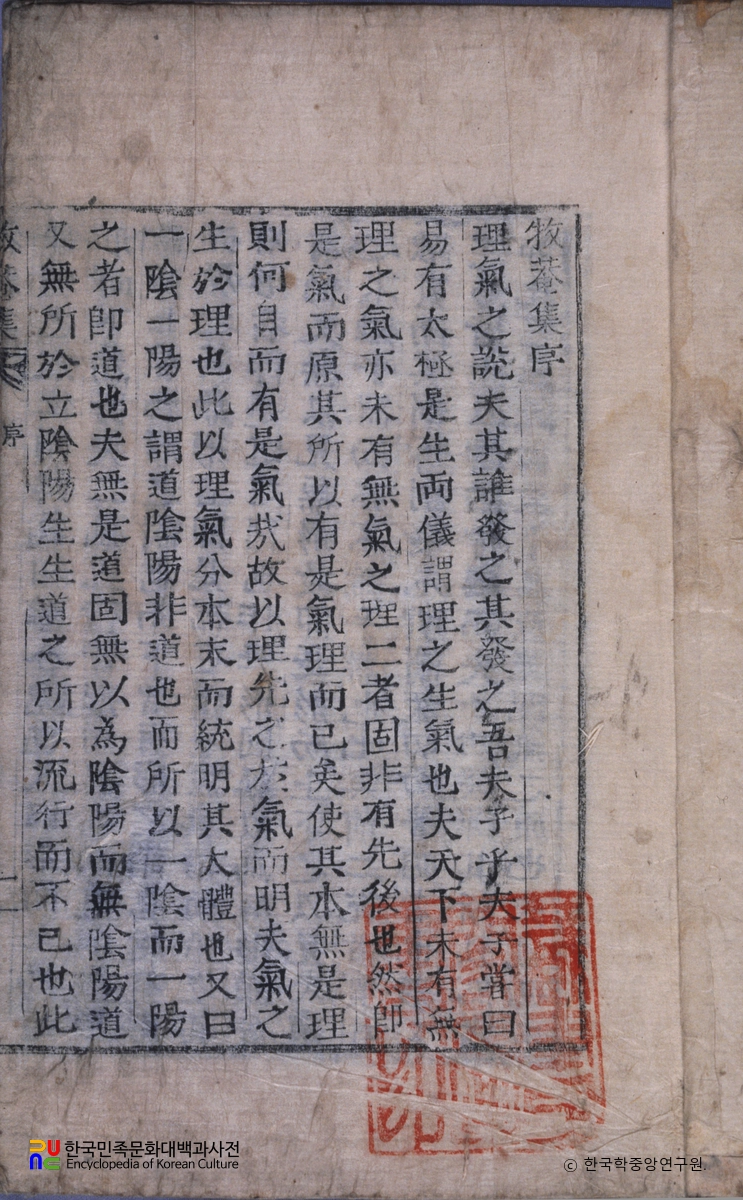 牧菴集序
理氣之說夫其誰發之其發之吾夫子乎夫子嘗曰
易有太極是生両儀謂理之生氣也夫天下未有無
理之氣亦未有無氣之理二者固非有先後也然即
是氣而原其所以有是氣理而已矣使其本無是理
則何自而有是氣㢤故以理先之於氣而明夫氣之
生於理也此以理氣分本末而統明其大體也又曰
一陰一陽之謂道陰陽非道也而所以一陰而一陽
之者即道也夫無是道固無以為陰陽而無陰陽道
又無所於立陰陽生生道之所以流行而不已也此
牧菴集 序 一
한국민족문화대백과사전
Encyclopedia of Korean Culture
© 한국학중앙연구원.